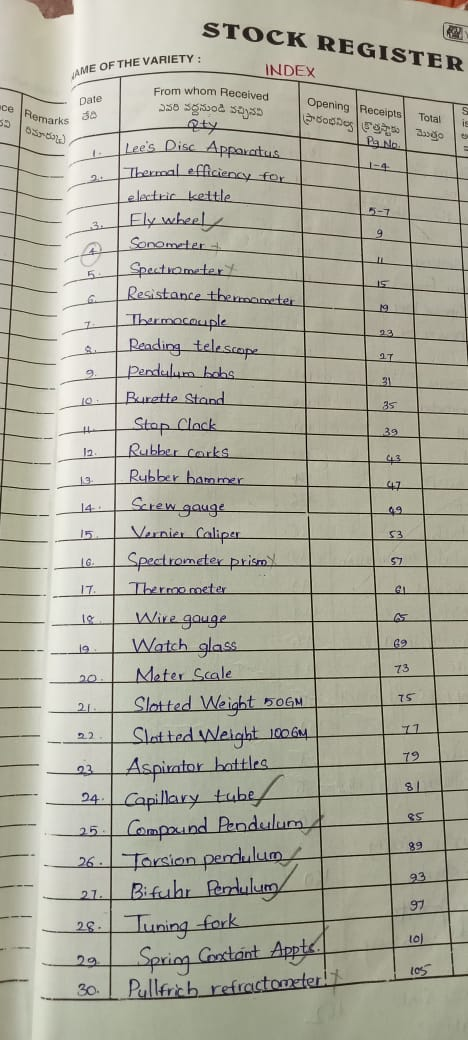 STOCK REGISTER
NAME OF THE VARIETY :
INDEX
Remarks Date From whom Received Opening Receipts Total
తేది ఎవరి వద్దనుండి వచ్చినవి ప్రారంభనిల్వ మొత్తం
Qty Pg No.
1. Lee's Disc Apparatus 1-4
2. Thermal efficiency for
electric kettle 5-7
3. Fly wheel 9
4 Sonometer 11
5. Spectrometer 15
6. Resistance thermometer 19
7. Thermocouple 23
8. Reading telescope 27
9. Pendulum bobs 31
10. Burette Stand 35
11. Stop Clock 39
12. Rubber corks 43
13. Rubber hammer 47
14. Screw gauge 49
15. Vernier Caliper 53
16. Spectrometer prism 57
17. Thermometer 61
18. Wire gauge 65
19. Watch glass 69
20. Meter Scale 73
21. Slotted Weight 50GM 75
22. Slotted Weight 100GM 77
23 Aspirator bottles 79
24. Capillary tube 81
25. Compound Pendulum 85
26. Torsion pendulum 89
27. Bifulur Pendulum 93
28. Tuning fork 97
29. Spring Constant Appts. 101
30. Pullfrich refractometer 105